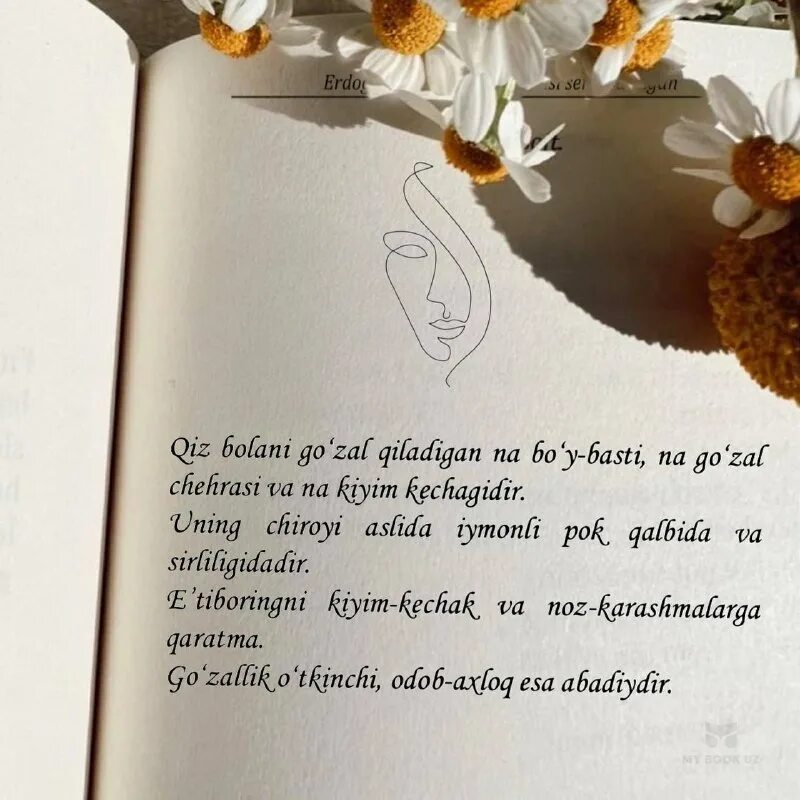 Qiz bolani go‘zal qiladigan na bo‘y-basti, na go‘zal
chehrasi va na kiyim kechagidir.
Uning chiroyi aslida iymonli pok qalbida va
sirliligidadir.
E’tiboringni kiyim-kechak va noz-karashmalarga
qaratma.
Go‘zallik o‘tkinchi, odob-axloq esa abadiydir.
MY BOOK UZ